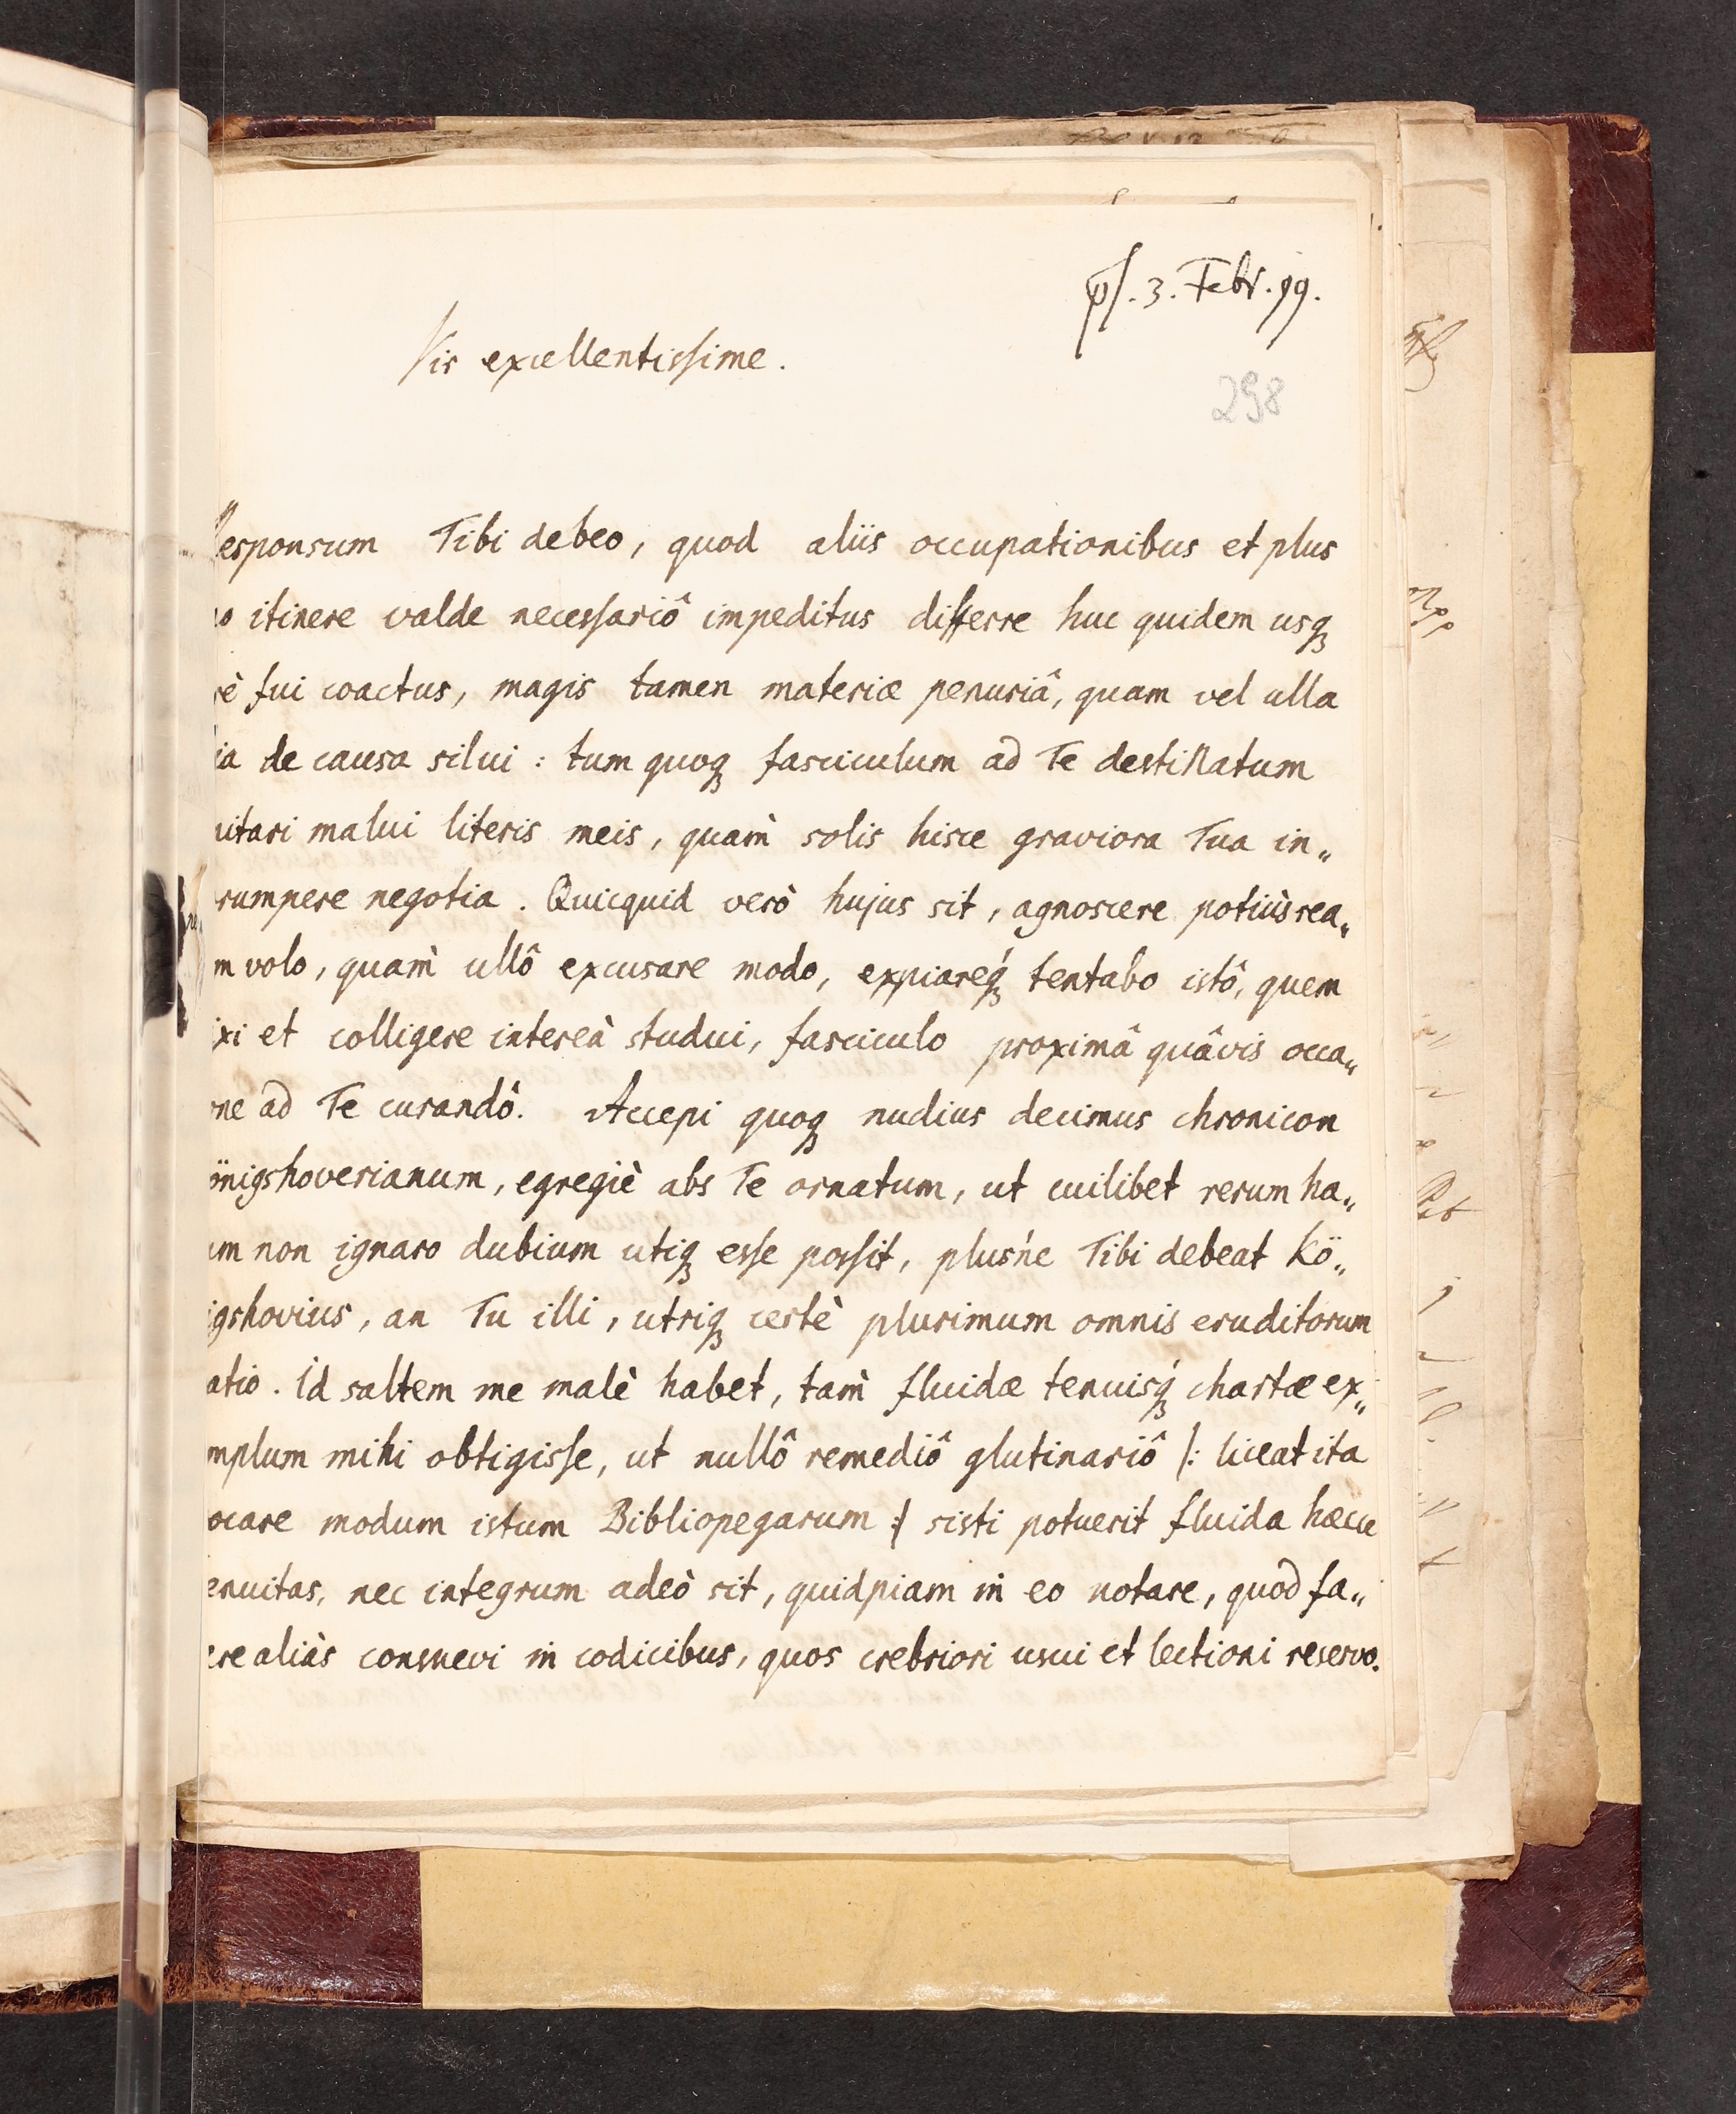 ps. 3. Febr. 99.
Vir excellentissime.
298
Responsum Tibi debeo, quod aliis occupationibus et plus
no itinere valde necessariô impeditus differre huc quidem usq
rè fui coactus, magis tamen materiæ penuriâ, quam vel ulla
ia de causa silui: tum quoq fasciculum ad Te destinatum
uitari malui literis meis, quam̀ solis hisce graviora Tua in„
rumpere negotia. Quicquid verò hujus sit, agnoscere potiùs rea„
m volo, quam̀ ullô excusare modo, expiareq́ tentabo istô, quem
ixi et colligere intereà studui, fasciculo proximâ quâvis occa„
one ad Te curandô. Accepi quoq nudius decimus chronicon
önigshoverianum, egregiè abs Te ornatum, ut cuilibet rerum ha„
um non ignaro dubium utiq esse possit, plusńe Tibi debeat Kö„
igshovius, an Tu illi, utriq certè plurimum omnis eruditorum
atio. Id saltem me malè habet, tam̀ fluidæ tenuisq́ chartæ ex„
mplum mihi obtigisse, ut nullô remediô glutinariô |: liceat ita
ocare modum istum Bibliopegarum :| sisti potuerit fluida hæcce
enuitas, nec integrum adeò sit, quidpiam in eo notare, quod fa„
ere aliàs consuevi in codicibus, quos crebriori usui et lectioni reservo.